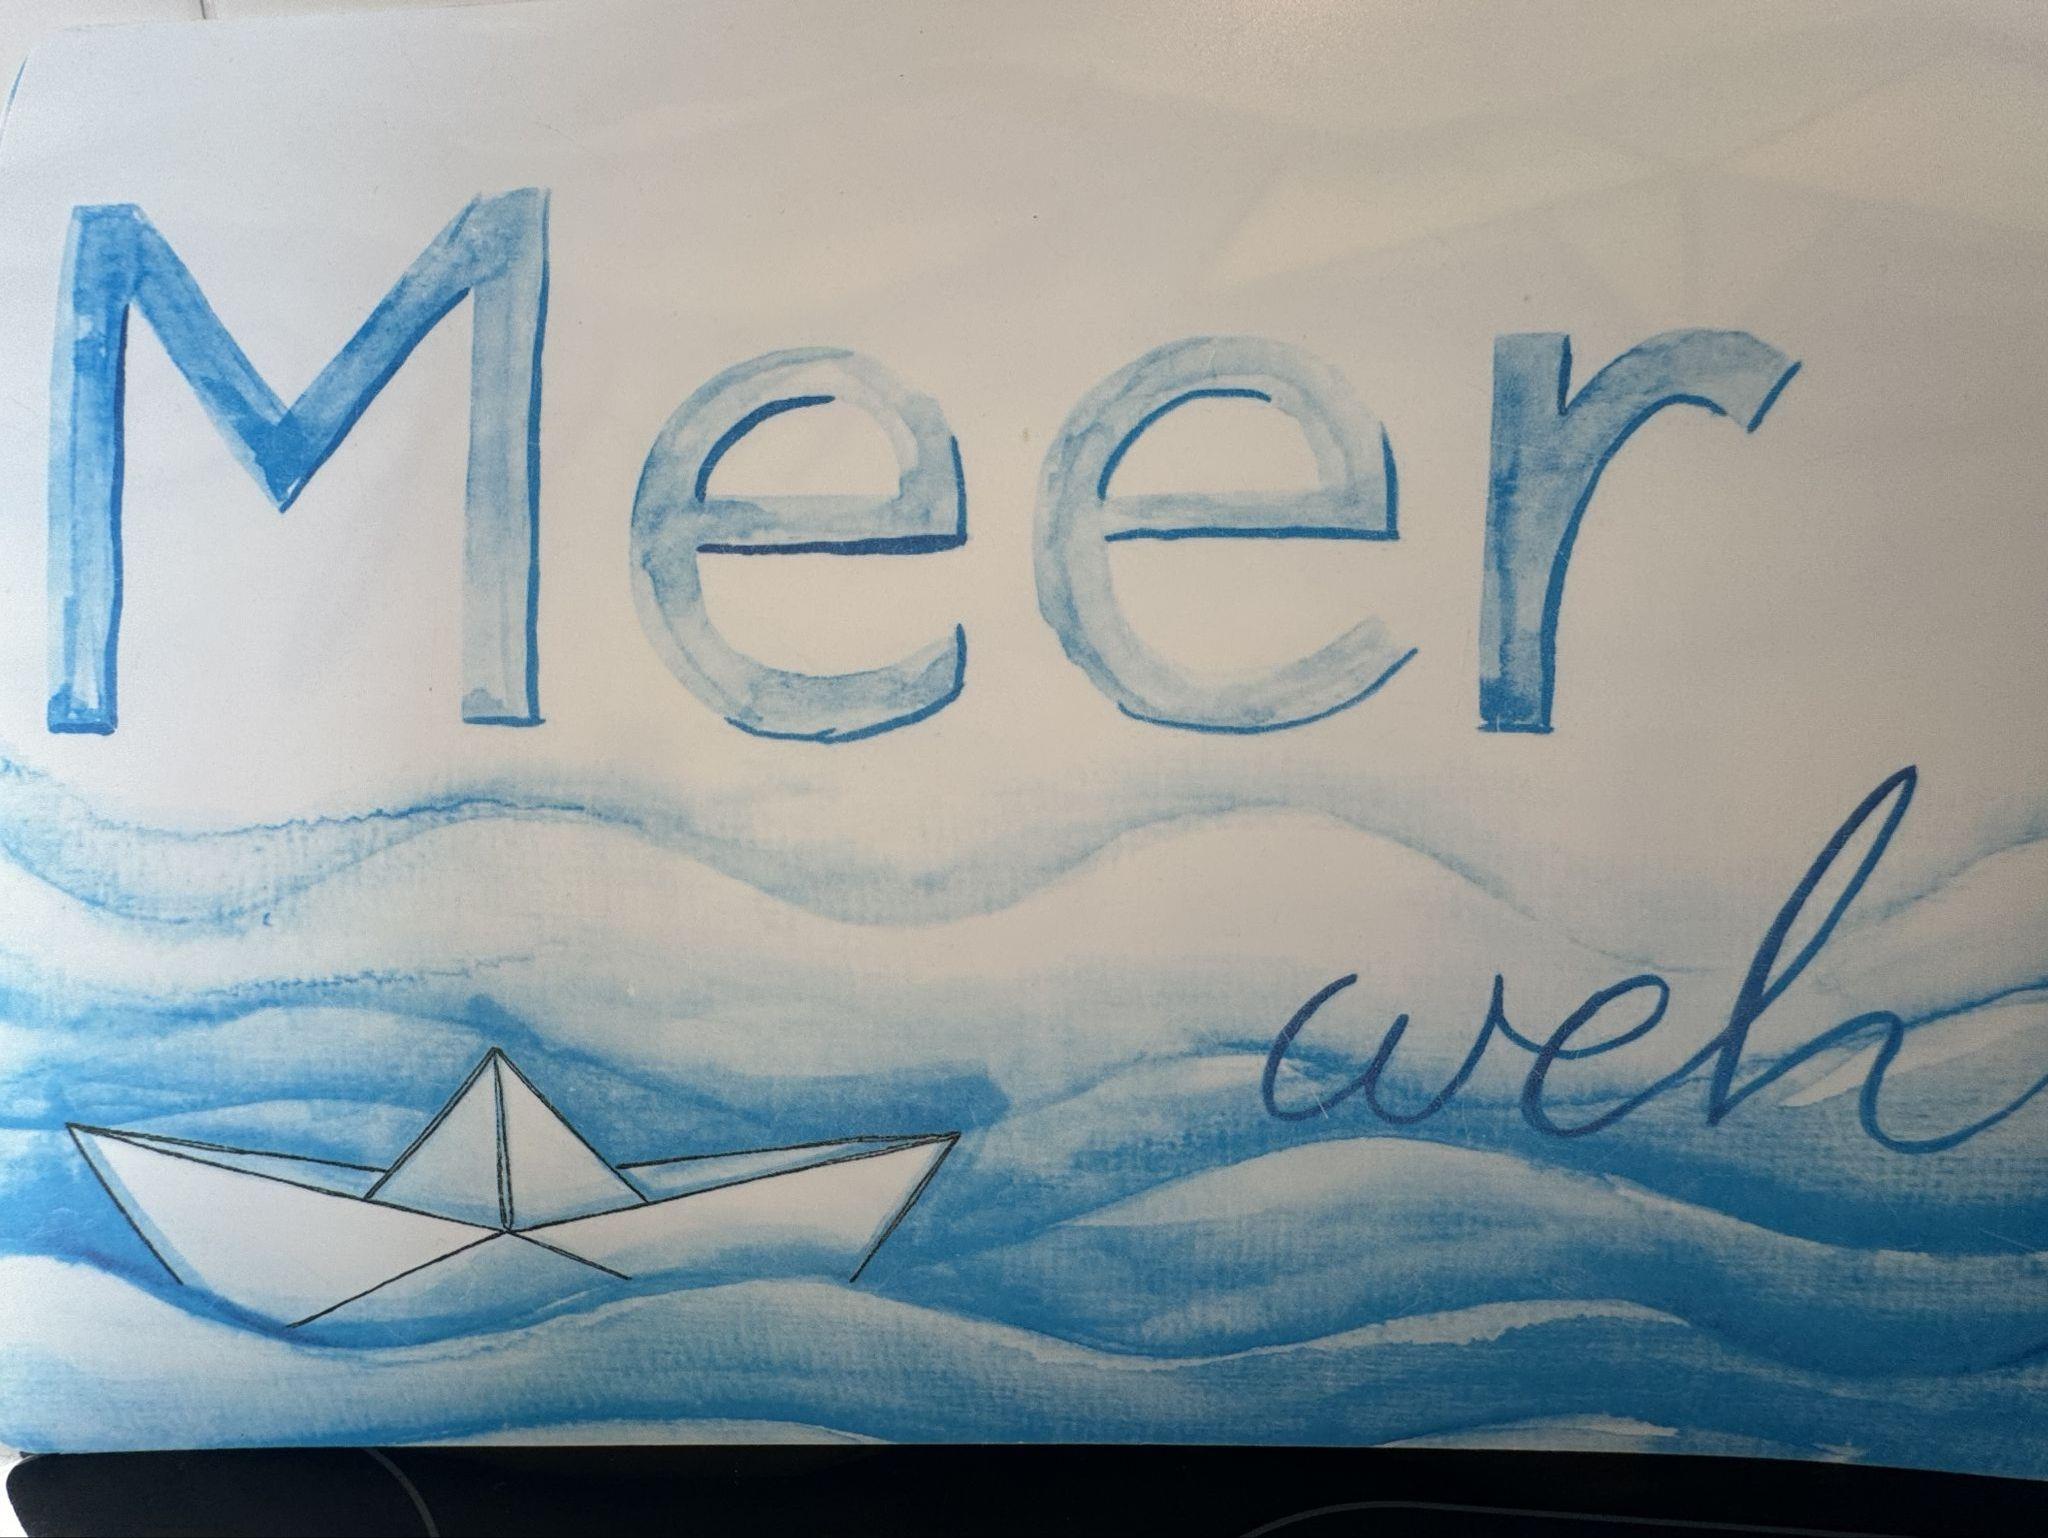 Meer
weh